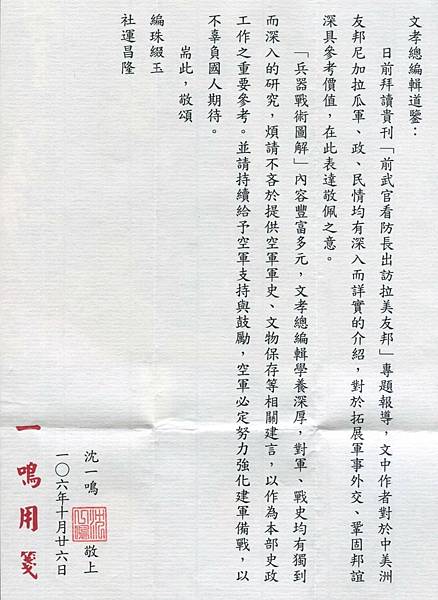 文孝總編輯道鑒：
日前拜讀貴刊「前武官看防長出訪拉美友邦」專題報導，文中作者對於中美洲
友邦尼加拉瓜軍、政、民情均有深入而詳實的介紹，對於拓展軍事外交、鞏固邦誼
深具參考價值，在此表達敬佩之意。
「兵器戰術圖解」內容豐富多元，文孝總編輯學養深厚，對軍、戰史均有獨到
而深入的研究，煩請不吝於提供空軍軍史、文物保存等相關建言，以作為本部史政
工作之重要參考。並請持續給予空軍支持與鼓勵，空軍必定努力強化建軍備戰，以
不辜負國人期待。
耑此，敬頌
編珠綴玉
社運昌隆
沈一鳴
沈一鳴
敬上
一〇六年十月廿六日
一鳴用箋